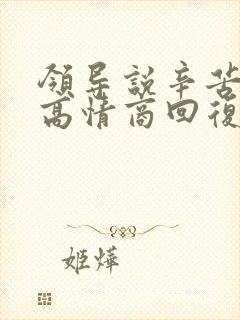 領导說辛苦
高情商回復
姬燁